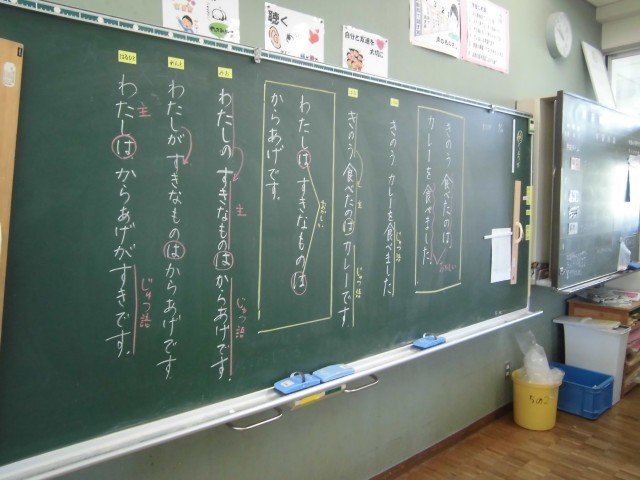 聴く
自分と友達を
大切に
きのう 食べたのは、
カレーを 食べました。
きのう カレーを食べました
じゅつ語
きのう 食べたのは カレーです。
主
じゅつ語
わたしは すきなものは
からあげです。
わたしの すきなものは からあげです。
主
じゅつ語
わたしが すきなものは からあげです。
わたしは からあげが すきです。
主
じゅつ語
ちの2